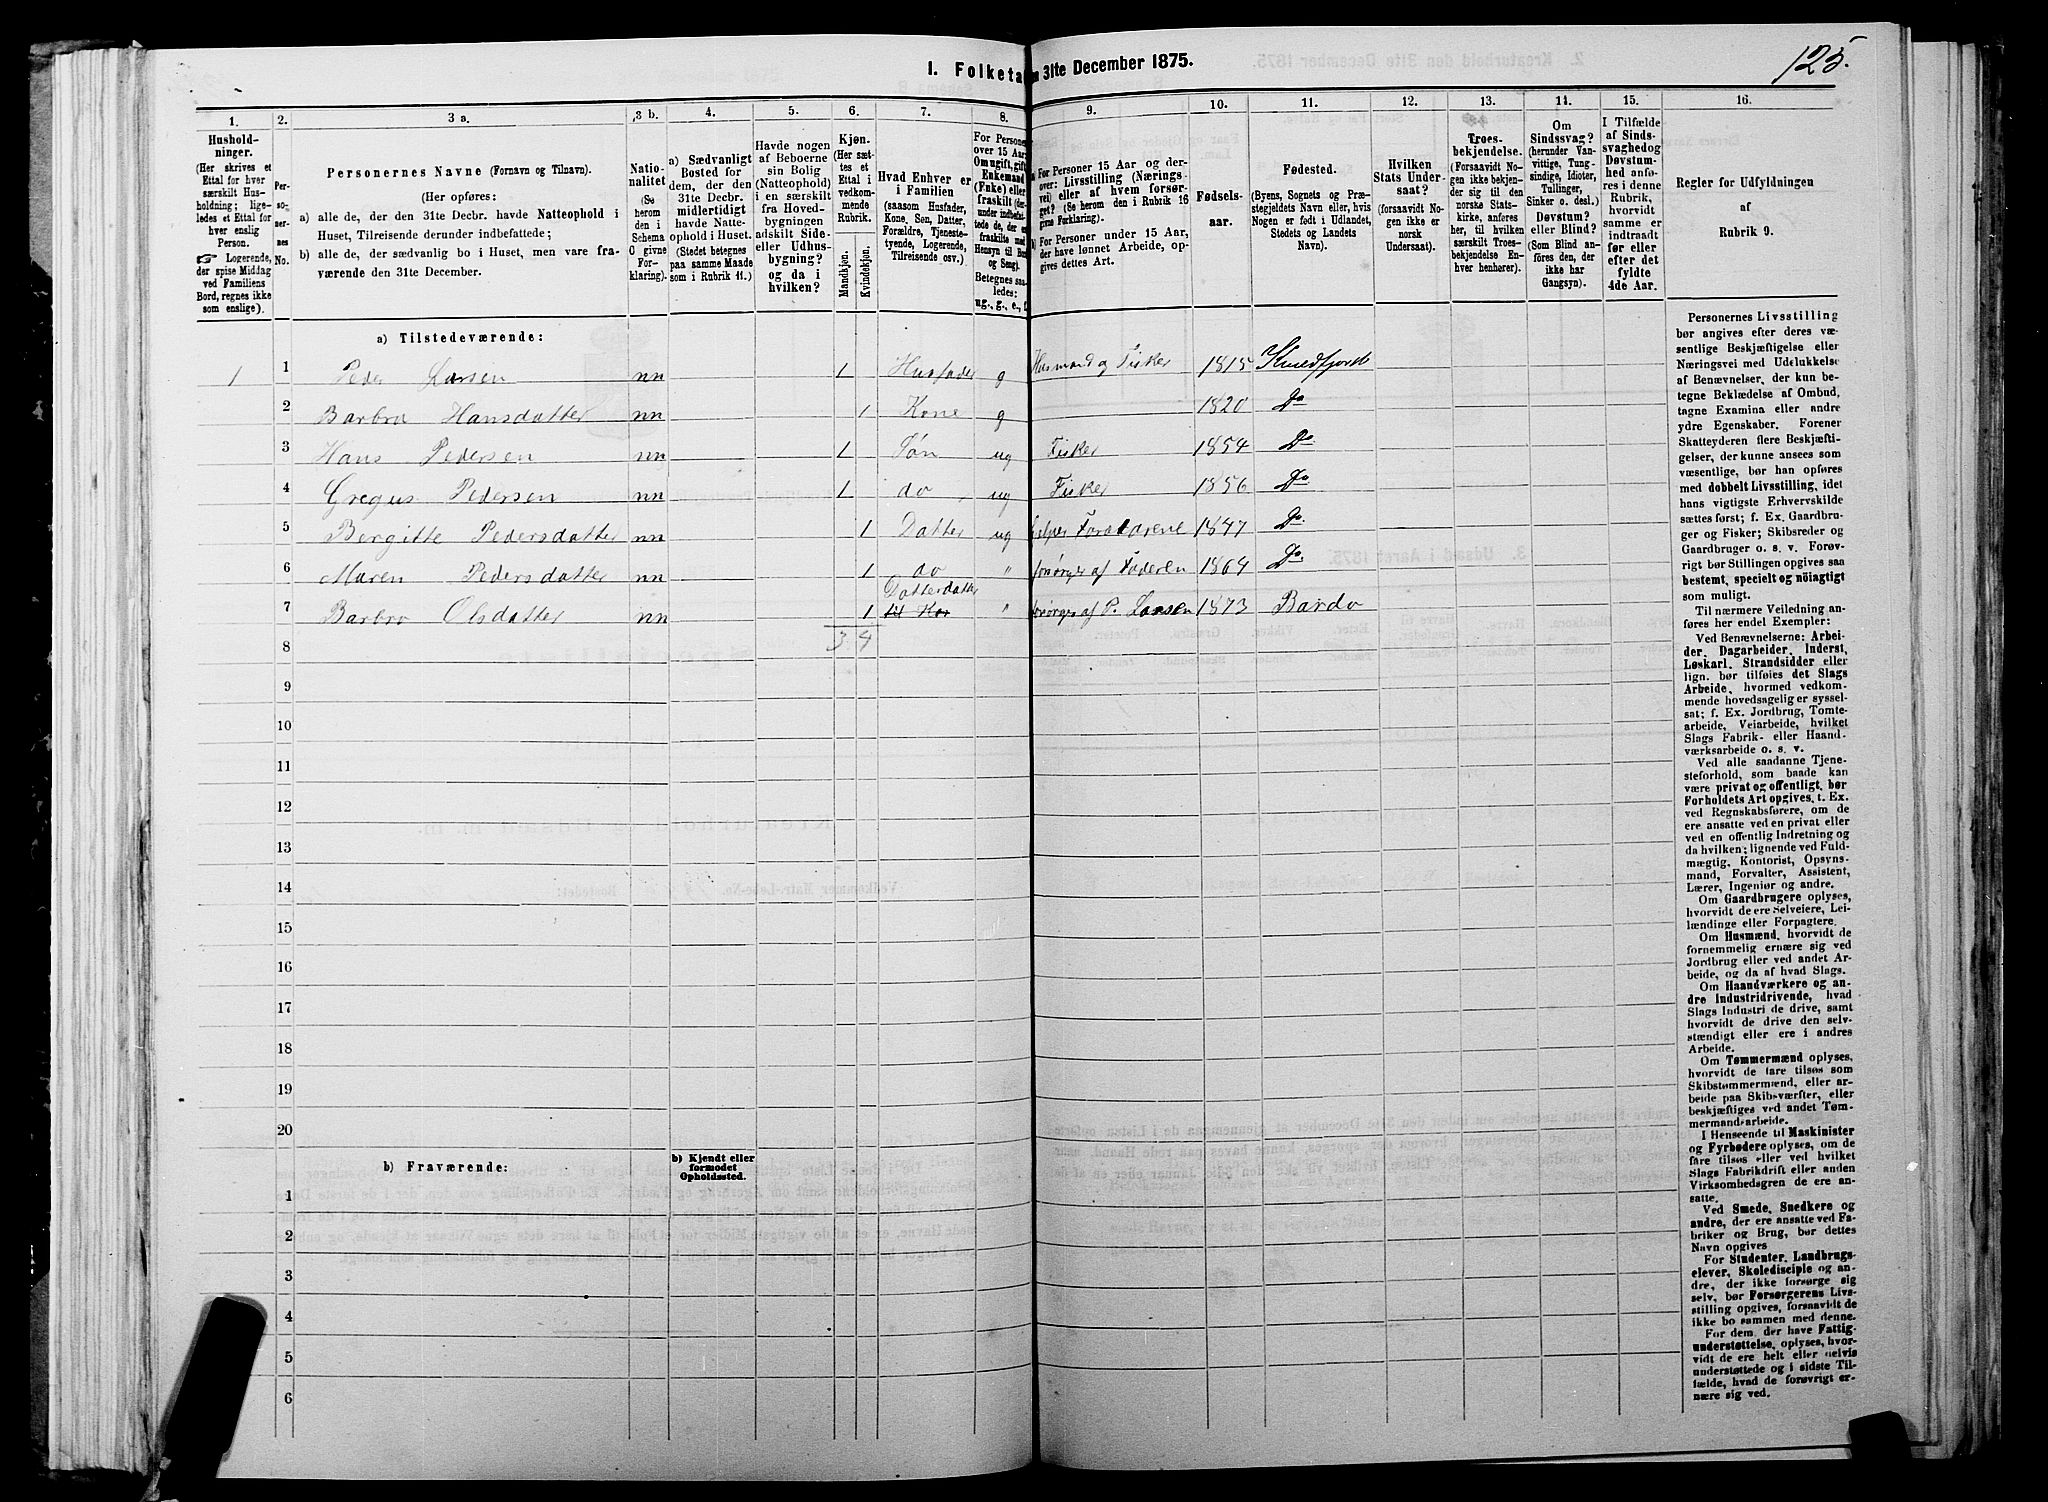 125.
I. Folketa
n 31te December 1875.
1. 2. 3 a. 3 b. 4. 5. 6. 7. 8. 9. 10. 11. 12. 13. 14. 15. 16.
Hushold-
ninger.
(Her skrives et
Ettal for hver
særskilt Hus-
holdning; lige-
ledes et Ettal for
hver enslig
Person.
☞ Logerende,
der spise Middag
ved Familiens
Bord, regnes ikke
som enslige).
Per-
so-
ner-
nes
No.
Personernes Navne (Fornavn og Tilnavn).
(Her opføres:
a) alle de, der den 31te Decbr. havde Natteophold i
Huset, Tilreisende derunder indbefattede;
b) alle de, der sædvanlig bo i Huset, men vare fra-
værende den 31te December.
Natio-
nalitet
(Se
herom
den i
Schema
O givne
For-
klaring).
a) Sædvanligt
Bosted for
dem, der den
31te Decbr.
midlertidigt
havde Natte-
ophold i Huset.
(Stedet betegnes
paa samme Maade
som i Rubrik 11.)
Havde nogen
af Beboerne
sin Bolig
(Natteophold)
i en særskilt
fra Hoved-
bygningen
adskilt Side-
eller Udhus-
bygning?
og da i
hvilken?
Kjøn.
(Her sæt-
tes et
Ettal i
vedkom-
mende
Rubrik.
Mandkjøn.
Kvindekjøn.
Hvad Enhver er
i Familien
(saasom Husfader,
Kone, Søn, Datter,
Forældre, Tjeneste-
tyende, Logerende,
Tilreisende osv.)
For Personer
over 15 Aar:
Om ugift, gift,
Enkemand
(Fnke) eller
fraskilt
Hensyn til Bord
og Seng).
Betegnes saa-
ledes:
ug., g., e., f.
For Personer 15 Aar og der-
over: Livsstilling (Nærings-
vei) eller af hvem forsør-
get? (Se herom den i Rubrik 16
givne Forklaring).
For Personer under 15 Aar,
der have lønnet Arbeide, op-
gives dettes Art.
Fødsels-
aar.
Fødested.
(Byens, Sognets og Præ-
stegjeldets Navn eller, hvis
Nogen er født i Udlandet,
Stedets og Landets
Navn).
Hvilken
Stats Under-
saat?
(forsaavidt No-
gen ikke er
norsk
Undersaat).
Troes-
bekjendelse.
(Forsaavidt No-
gen ikke bekjen-
der sig til den
norske Stats-
kirke, anføres
her, til hvilken
særskilt Troes-
bekjendelse En-
hver henhører).
Om
Sindssvag?
(herunder Van-
vittige, Tung-
sindige, Idioter,
Tullinger,
Sinker o. desl.)
Døvstum?
eller Blind?
(Som Blind an-
føres den, der
ikke har
Gangsyn).
I Tilfælde
af Sinds-
svaghed og
Døvstum-
hed anfø-
res i denne
Rubrik,
hvorvidt
samme er
indtraadt
før eller
efter det
fyldte
4de Aar.
Regler for Udfyldningen
af
Rubrik 9.
a) Tilstedeværende:
1 1 Peder Larsen nn 1 Husfader g Husmand og Fisker 1815 Kvedfjord
2 Barbro Hansdatter nn 1 Kone g 1820 Do
3 Hans Pedersen nn 1 Søn ug Fisker 1854 Do
4 Gregus Pedersen nn 1 do ug Fisker 1856 Do
5 Bergitte Pedersdatter nn 1 Datter ug hjelper Forældrene 1847 Do
6 Maren Pedersdatter nn 1 do " forsørges af Faderen 1864 Do
7 Barbro Olsdatter nn 1 Datterdatter " forsørges af P. Larsen 1873 Bardo
8 3 4
9
10
11
12
13
14
15
16
17
18
19
20
b) Fraværende:
b) Kjendt eller
formodet
Opholdssted.
1
2
3
4
5
6
Personernes Livsstilling
bør angives efter deres væ-
sentlige Beskjæftigelse eller
Næringsvei med Udelukkelse
af Benævnelser, der kun be-
tegne Beklædelse af Ombud,
tagne Examina eller andre
ydre Egenskaber. Forener
Skatteyderen flere Beskjæfti-
gelser, der kunne ansees som
væsentlige, bør han opføres
med dobbelt Livsstilling, idet
hans vigtigste Erhvervskilde
sættes først; f. Ex. Gaardbru-
ger og Fisker; Skibsreder og
Gaardbruger o. s. v. Forøv-
rigt bør Stillingen opgives saa
bestemt, specielt og nöiagtigt
som muligt.
Til nærmere Veiledning an-
føres her endel Exempler:
Ved Benævnelserne: Arbei-
der, Dagarbeider, Inderst,
Løskarl, Strandsidder eller
lign. bør tilføies det Slags
Arbeide, hvormed vedkom-
mende hovedsagelig er syssel-
sat; f. Ex. Jordbrug, Tomte-
arbeide, Veiarbeide, hvilket
Slags Fabrik- eller Haand-
værksarbeide o. s. v.
Ved alle saadanne Tjene-
steforhold, som baade kan
være privat og offentligt, bør
Forholdets Art opgives, t. Ex.
ved Regnskabsførere, om de
ere ansatte ved en privat eller
ved en offentlig Indretning og
da hvilken; lignende ved Fuld-
mægtig, Kontorist, Opsyns-
mand, Forvalter, Assistent,
Lærer, Ingeniør og andre.
Om Gaardbrugere oplyses,
hvorvidt de ere Selveiere, Lei-
lændinge eller Forpagtere.
Om Husmænd, hvorvidt de
fornemmelig ernære sig ved
Jordbrug eller ved andet Ar-
beide, og da af hvad Slags.
Om Haandværkere og an-
dre Industridrivende, hvad
Slags Industri de drive, samt
hvorvidt de drive den selv-
stændigt eller ere i andres
Arbeide.
Om Tømmermænd oplyses,
hvorvidt de fare tilsøs som
Skibstømmermænd, eller ar-
beide paa Skibsværfter, eller
beskjæftiges ved andet Tøm-
mermandsarbeide.
I Henseende til Maskinister
og Fyrbødere oplyses, om de
fare tilsøs eller ved hvilket
Slags Fabrikdrift eller anden
Virksomhedsgren de ere an-
satte.
Ved Smede, Snedkere og
andre, der ere ansatte ved Fa-
briker og Brug, bør dettes
Navn opgives
For Studenter, Landbrugs-
elever, Skoledisciple og an-
dre, der ikke forsørge sig
selv, bør Forsørgerens Livs-
stilling opgives, forsaavidt de
ikke bo sammen med denne.
For dem, der have Fattig-
understøttelse, oplyses, hvor-
vidt de ere helt eller delvis
understøttede og i sidste Til-
fælde, hvad de forøvrigt er-
nære sig ved.